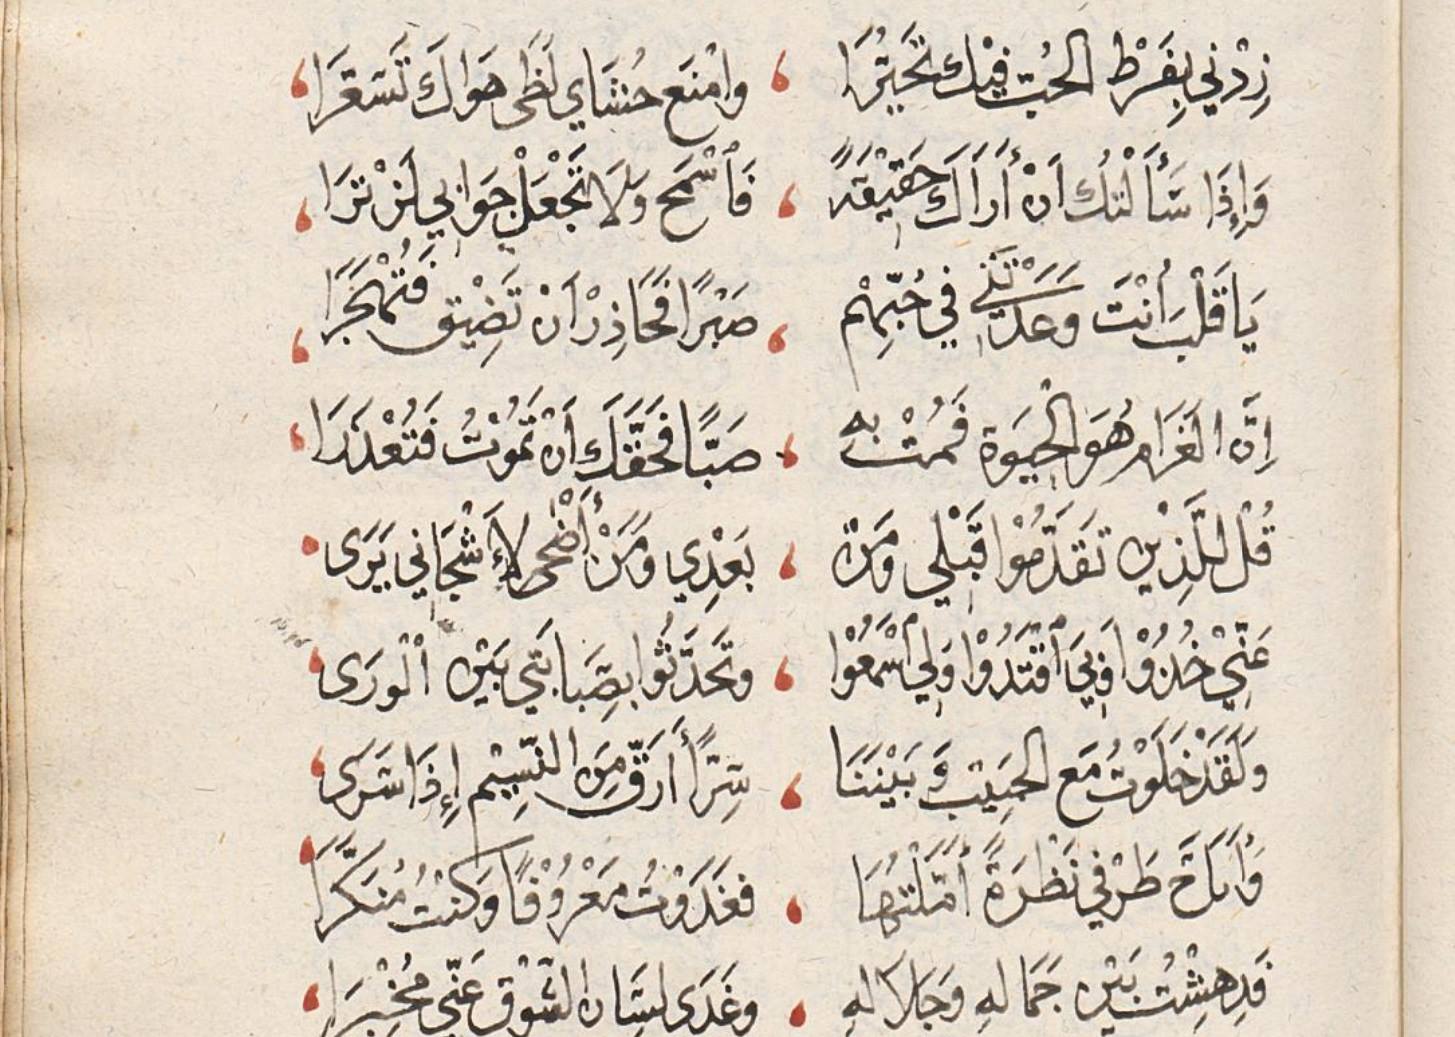 زِدْنِي بِفَرْطِ الحُبِّ فِيْكَ تَحَيُّرَا ، وامْنَع حُشَاي لَظَى هَوَاكَ تَسَعُّرَا
وَإِذَا سَأَلْتُكَ اَنْ أَرَاكَ حَقِيْقَةً ، فَاْسْمَح وَلَا تَجْعَلْ جَوَابِي لَنْ تَرَا
يَا قَلْبَ أَنْتَ وعَدْتَنِي فِي حُبِّهِمْ ، صَبْرًا فَحَاذِرْ اَنْ تَضِيْق فَتُهْجَرَا
اِنَّ الغَرَامِ هُوَ الْحَيَوة فَمُتْ بِهِ ، صَبًّا فَحَقَّكَ اَنْ تَمُوْتُ فَتُعْذَرَا
قُلْ لِلَّذِيْنِ تَقَدَّمُوْا قَبْلِي وَمَنْ ، بَعْدِي وَمَنْ أَضْحَى لِأَشْجَانِي يَرَى
عَنِّيْ خُذُوْا وَبِيَ اقْتَدُوْا وَلِي اسْمَعُوْا ، وتَحَدَّثُوا بِصَبَابَتِي بَيْنِ الْوَرَى
وَلَقَدْ خَلَوْتُ مَع الحَبِيْبِ وَ بَيْنَنَا ، سِرًّا أَرَقّ مِنَ النَّسِيْمِ إِذَا سَرَى
وَأَبَاحَ طَرْفِي نَظْرَةً أَمَّلْتُهَا ، فغَدَوْتُ مَعْرُوْفًا وَكنْتُ مُنَكَّرَا
فَدهِشْتُ بَيْن جَمَالهِ وَجَلَالهِ ، وغَدَى لسَان الشَّوْقِ عَنِّي مُخْبِرَا